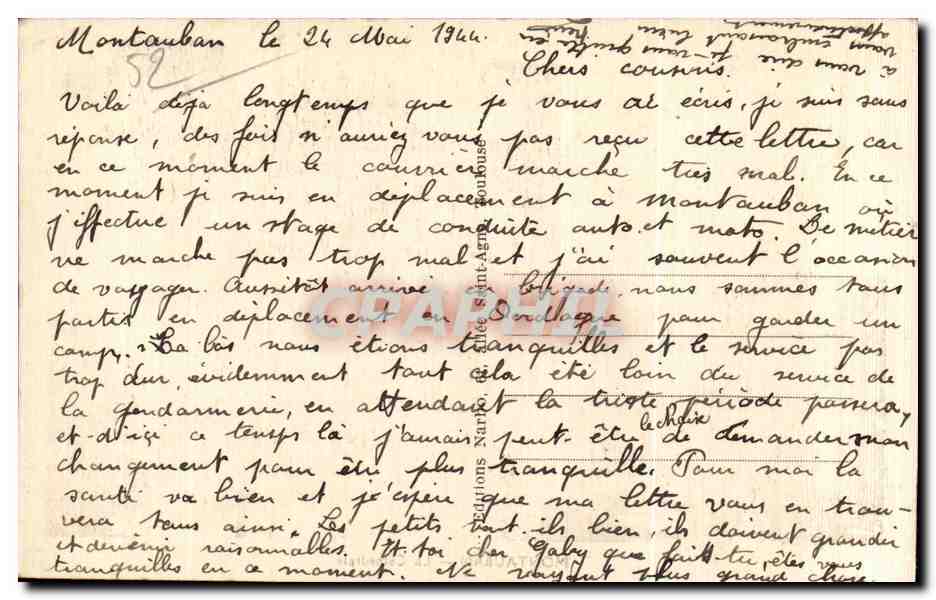 Montauban le 24 Mai 1944.
52
Chers cousins.
Voilà déja longtemps que je vous ai écris, je suis sans
réponse, des fois n'auriez vous pas reçu cette lettre, car
en ce moment le courrière marche très mal. En ce
moment je suis en déplacement à Montauban où
j'effectue un stage de conduite auto et moto. Le métier
ne marche pas trop mal et j'ai souvent l'occasion
de voyager. Aussitôt arrivé en brigade nous sommes tous
partis en déplacement en Dordogne pour garder un
camp. La bàs nous étions tranquilles et le service pas
trop dur, évidemment tout cela été loin du service de
la gendarmerie, en attendant la triste période passera,
et d'ici ce temps là j'aurais peut-être le choix de demander mon
changement pour être plus tranquille. Pour moi la
santé va bien et j'éspère que ma lettre vous en trou-
vera tous ainsi. Les petits vont-ils bien, ils doivent grandir
et devenir raisonnables. Et toi cher Gaby que fait-tu, êtes vous
tranquilles en ce moment. Ne voyant plus grand chose
à vous dire je vous quitte en
vous embrassant bien
affectueusement
Editions Narbo, Allée Saint-Agne, Toulouse
MONTAUBAN - La Cathédrale
CPARPHIL